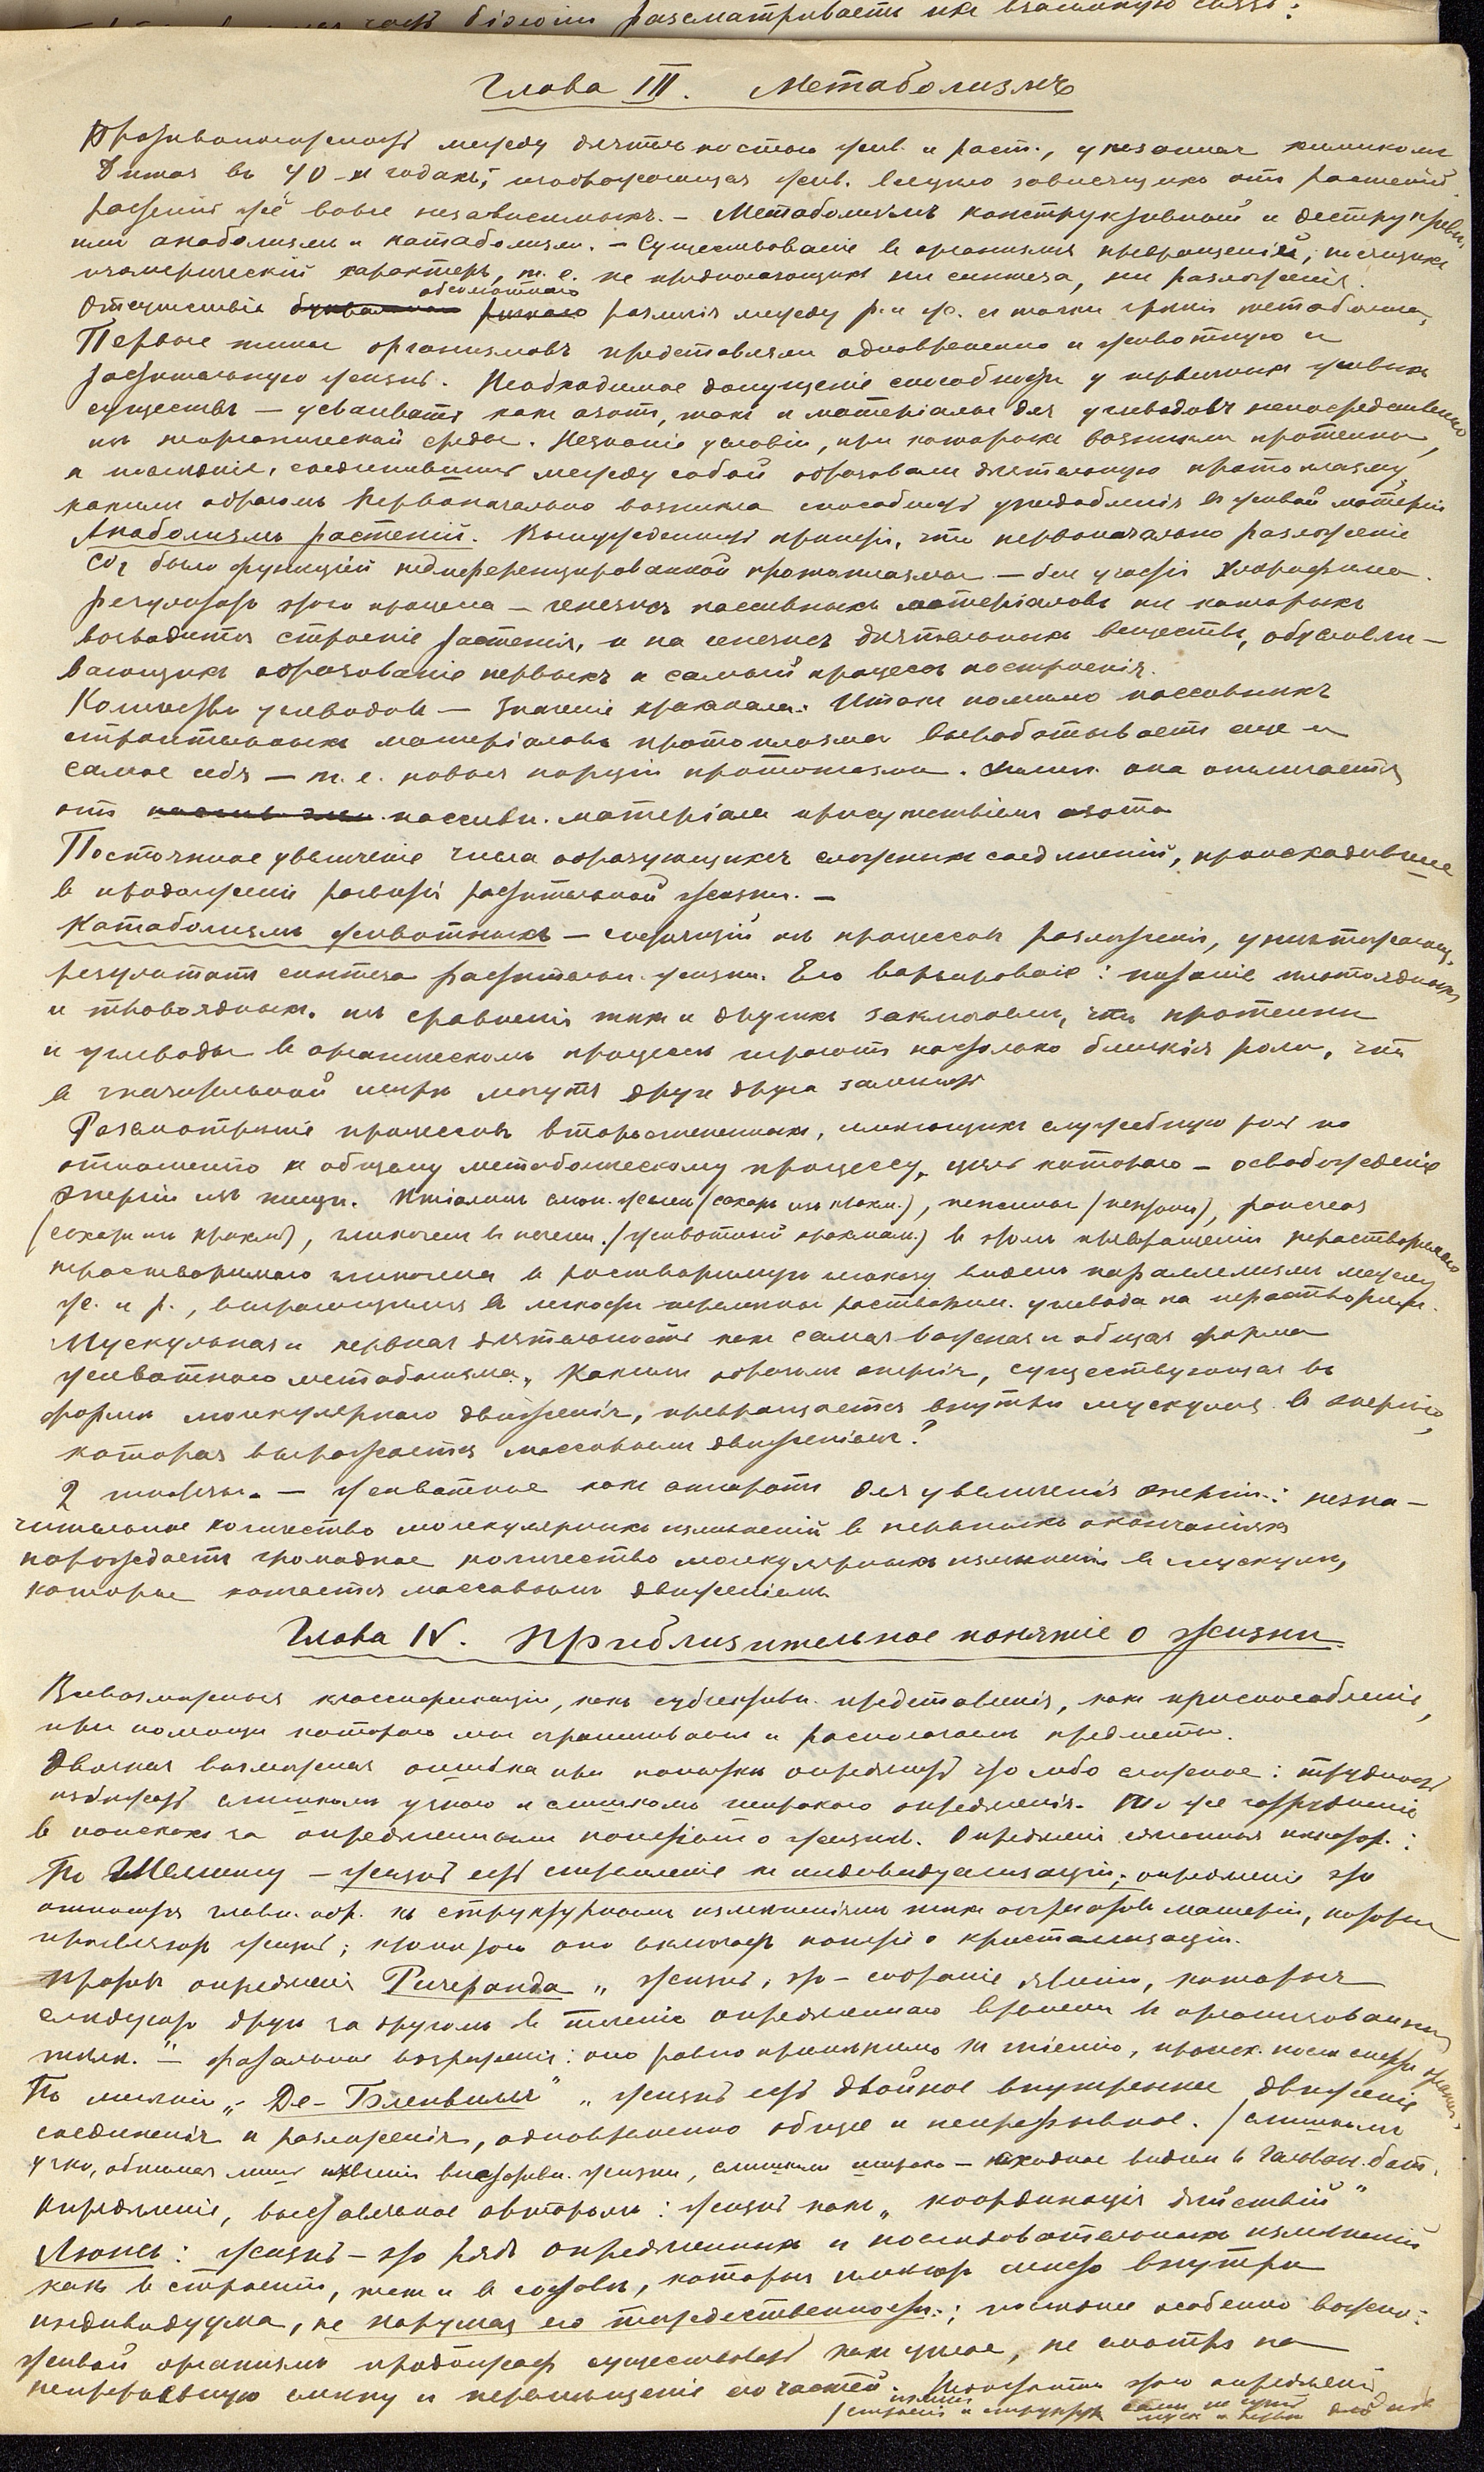 часть біологіи разсматриваетъ ихъ взаимную связь:
Глава III. Метаболизмъ
Противоположность между дѣятельностью жив. и раст., указанная химикомъ
Дюма въ 40-х годахъ, изображающая жив. всецѣло зависящихъ отъ растеній
растенія же вовсе независимыхъ. — Метаболизмъ конструктивный и деструктивн.
или анаболизмъ и катаболизмъ. — Существованіе в организмѣ превращеній, носящихъ
изомерическій характеръ, т. е. не предполагающихъ ни синтеза, ни разложенія.
Отсутствіе абсолютнаго различія между р. и ж. с точки зрѣнія метаболизма,
Первые типы организмовъ представляли одновременно и животную и
растительную жизнь. Необходимое допущеніе способности у первичныхъ живыхъ
существъ — усваивать какъ азотъ, такъ и матеріалы для углеводовъ непосредственно
изъ неорганической среды. Незнаніе условій, при которыхъ возникли протеины,
и послѣдніе, соединившись между собой образовали дѣятельную протоплазму,
какимъ образомъ первоначально возникла способность уподобленія в живой матеріи
Анаболизмъ растеній. Вынужденность принять, что первоначально разложеніе
CO2 было функціей недиференцированной протоплазмы — без участія хлорофила.
Результатъ этого процесса — генезисъ пассивныхъ матеріаловъ из которыхъ
возводится строеніе растенія, и на генезисъ дѣятельныхъ веществъ, обусловли—
вающихъ образованіе первыхъ и самый процессъ построенія.
Количество углеводовъ — значеніе крахмала. Итакъ помимо пассивныхъ
строительныхъ матеріаловъ протоплазма вырабатываетъ еще и
самое себя — т. е. новыя порціи протоплазмы. Химич. она отличается
отъ пассивн. матеріала присутствіемъ азота
Постоянное увеличеніе числа образующихся сложныхъ соединеній, происходившее
в продолженіи развитія растительной жизни. —
Катаболизмъ животныхъ — слагающій изъ процессовъ разложенія, уничтожающ.
результатъ синтеза растительн. жизни. Его варьированіе: питаніе плотоядныхъ
и травоядныхъ. изъ сравненія тѣхъ и другихъ заключаемъ, что протеины
и углеводы в органическомъ процессѣ играютъ настолько близкія роли, что
в значительной мѣрѣ могутъ другъ друга замѣнять
Разсмотрѣніе процессовъ второстепенныхъ, имѣющихъ служебную роль по
отношенію к общему метаболическому процессу, цѣль котораго — освобожденіе
энергіи изъ пищи. Птіалинъ слюн. железы (сахаръ изъ крахм.), пепсины (пептоны), pancreas
(сахаръ изъ крахм.), гликогенъ въ печени (животный крахмалъ) в этомъ превращеніи нерастворимаго
гликогена в растворимую глюкозу видимъ параллелизмъ между
ж. и р., выражающимся в легкости перемѣны растворим. углевода на нерастворим.
Мускульная и нервная дѣятельность какъ самая важная и общая форма
животнаго метаболизма. Какимъ образомъ энергія, существующая въ
формѣ молекулярнаго движенія, превращается внутри мускуловъ в энергію,
которая выражается массовымъ движеніемъ?
2 — животное какъ аппаратъ для увеличенія энергіи: незна—
чительное количество молекулярныхъ измѣненій в нервныхъ окончаніяхъ
порождаетъ громадное количество молекулярныхъ измѣненій в мускулѣ,
которые массовымъ движеніемъ.
Глава IV. Приблизительное понятіе о жизни.
Всевозможныя классификаціи, какъ субъективн. представленія, какъ приспособленіе,
при помощи котораго мы и располагаемъ предметы.
Двоякая возможная ошибка при попыткѣ опредѣлить что либо сложное: трудность
избѣжать слишкомъ узкаго и слишкомъ широкаго опредѣленія. То же затрудненіе
в поискахъ за опредѣленнымъ понятіемъ о жизни. Опредѣленія :
По Шелингу — жизнь есть стремленіе къ индивидуализаціи; опредѣленіе это
относится главн. обр. къ структурнымъ измѣненіямъ тѣхъ агрегатовъ матеріи, которые
проявляютъ жизнь; кромѣ того оно включаетъ понятіе о кристализаціи.
Противъ опредѣленія Ричеранда „жизнь, это — собраніе явленій, которыя
слѣдуютъ другъ за другомъ в теченіе опредѣленнаго времени в организованномъ
тѣлѣ." — фатальное возраженіе: оно равно примѣнимо къ гніенію, происх. послѣ смерти организ.
По мнѣнію „Де-Бленвилля" „жизнь есть двойное внутреннее движеніе
соединенія и разложенія, одновременно общее и непрерывное. (слишкомъ
узко, обнимая лишь явленія вегетативн. жизни, слишкомъ широко — сходное видимъ в гальван. бат.
Опредѣленіе, выставленное авторомъ: жизнь какъ „координація дѣйствій"
Льюисъ: жизнь — это рядъ опредѣленныхъ и послѣдовательныхъ измѣненій
какъ в строеніи, такъ и в составѣ, которыя имѣютъ мѣсто внутри
индивидуума, не нарушая его тождественности.; послѣднее особенно важно:
живой организмъ продолжаетъ существовать какъ цѣлое, не смотря на
непрерывную смѣну и перемѣщеніе его частей. этого опредѣленія